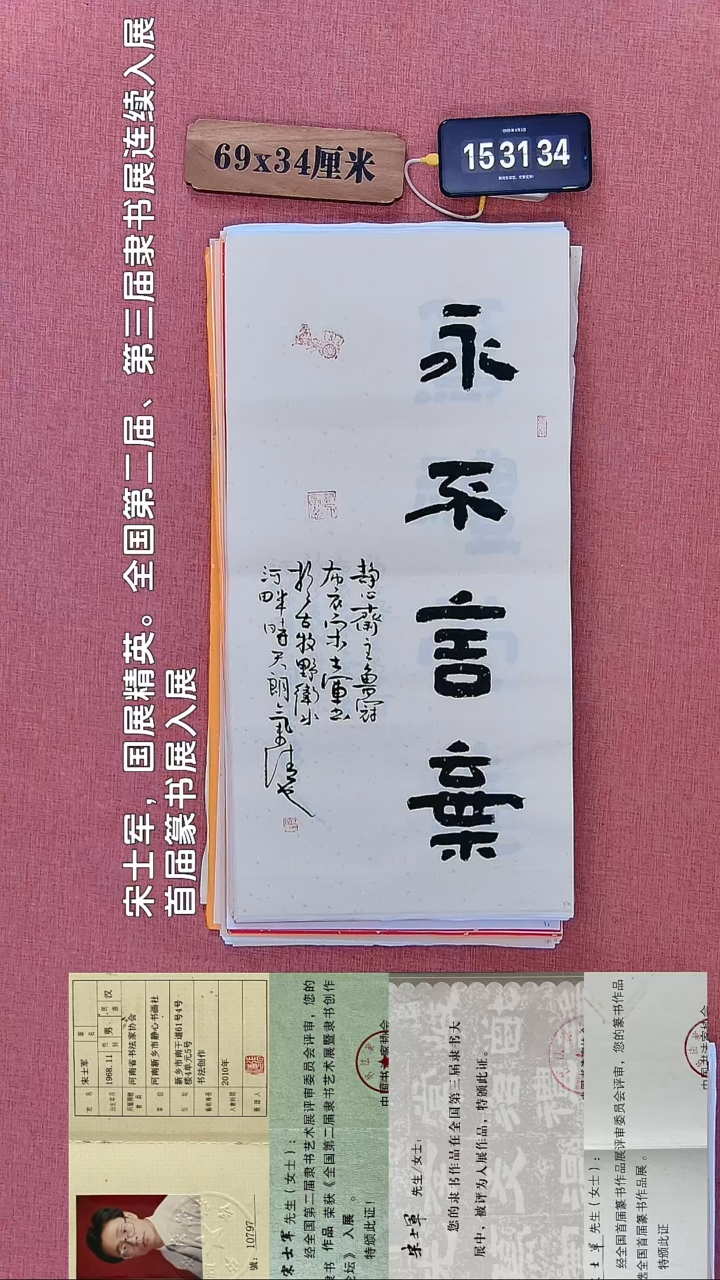 宋士军，国展精英。全国第二届、第三届隶书展连续入展
首届篆书展入展
69x34厘米
15 31 34
永不言棄
布衣宋士軍書
於古牧野衛水
河畔時天朗氣清也
姓名 宋士军
出生年月 1968.11 性别 男 民族 汉
河南省书法家协会
单位 河南新乡市静心书画社
住址 新乡市南干道61号4号
楼4单元5号
书法创作
2010年
號：10797
宋士军 先生（女士）：
经全国第二届隶书艺术展评审委员会评审，您的
隶书 作品 荣获《全国第二届隶书艺术展暨隶书创作
论坛》 入展 。
特颁此证！
宋士軍 先生/女士：
您的隶书作品在全国第三届隶书大
展中，被评为入展作品，特颁此证。
士军 先生（女士）：
经全国首届篆书作品展评审委员会评审，您的篆书作品
选全国首届篆书作品展。
特颁此证